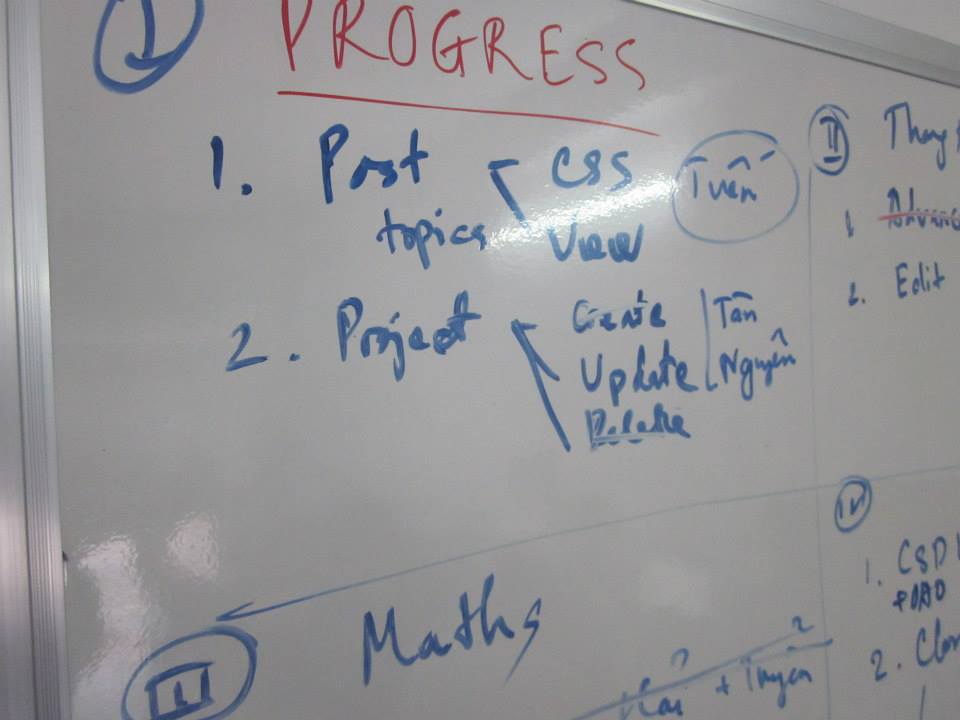 I PROGRESS
1. Post topics
CSS
View
Tuấn
2. Project
Create
Update
Delete
Tân
Nguyên
II
1
2. Edit
III Maths
+ Truyền
2
IV
1. CSD
+ DAO
2.